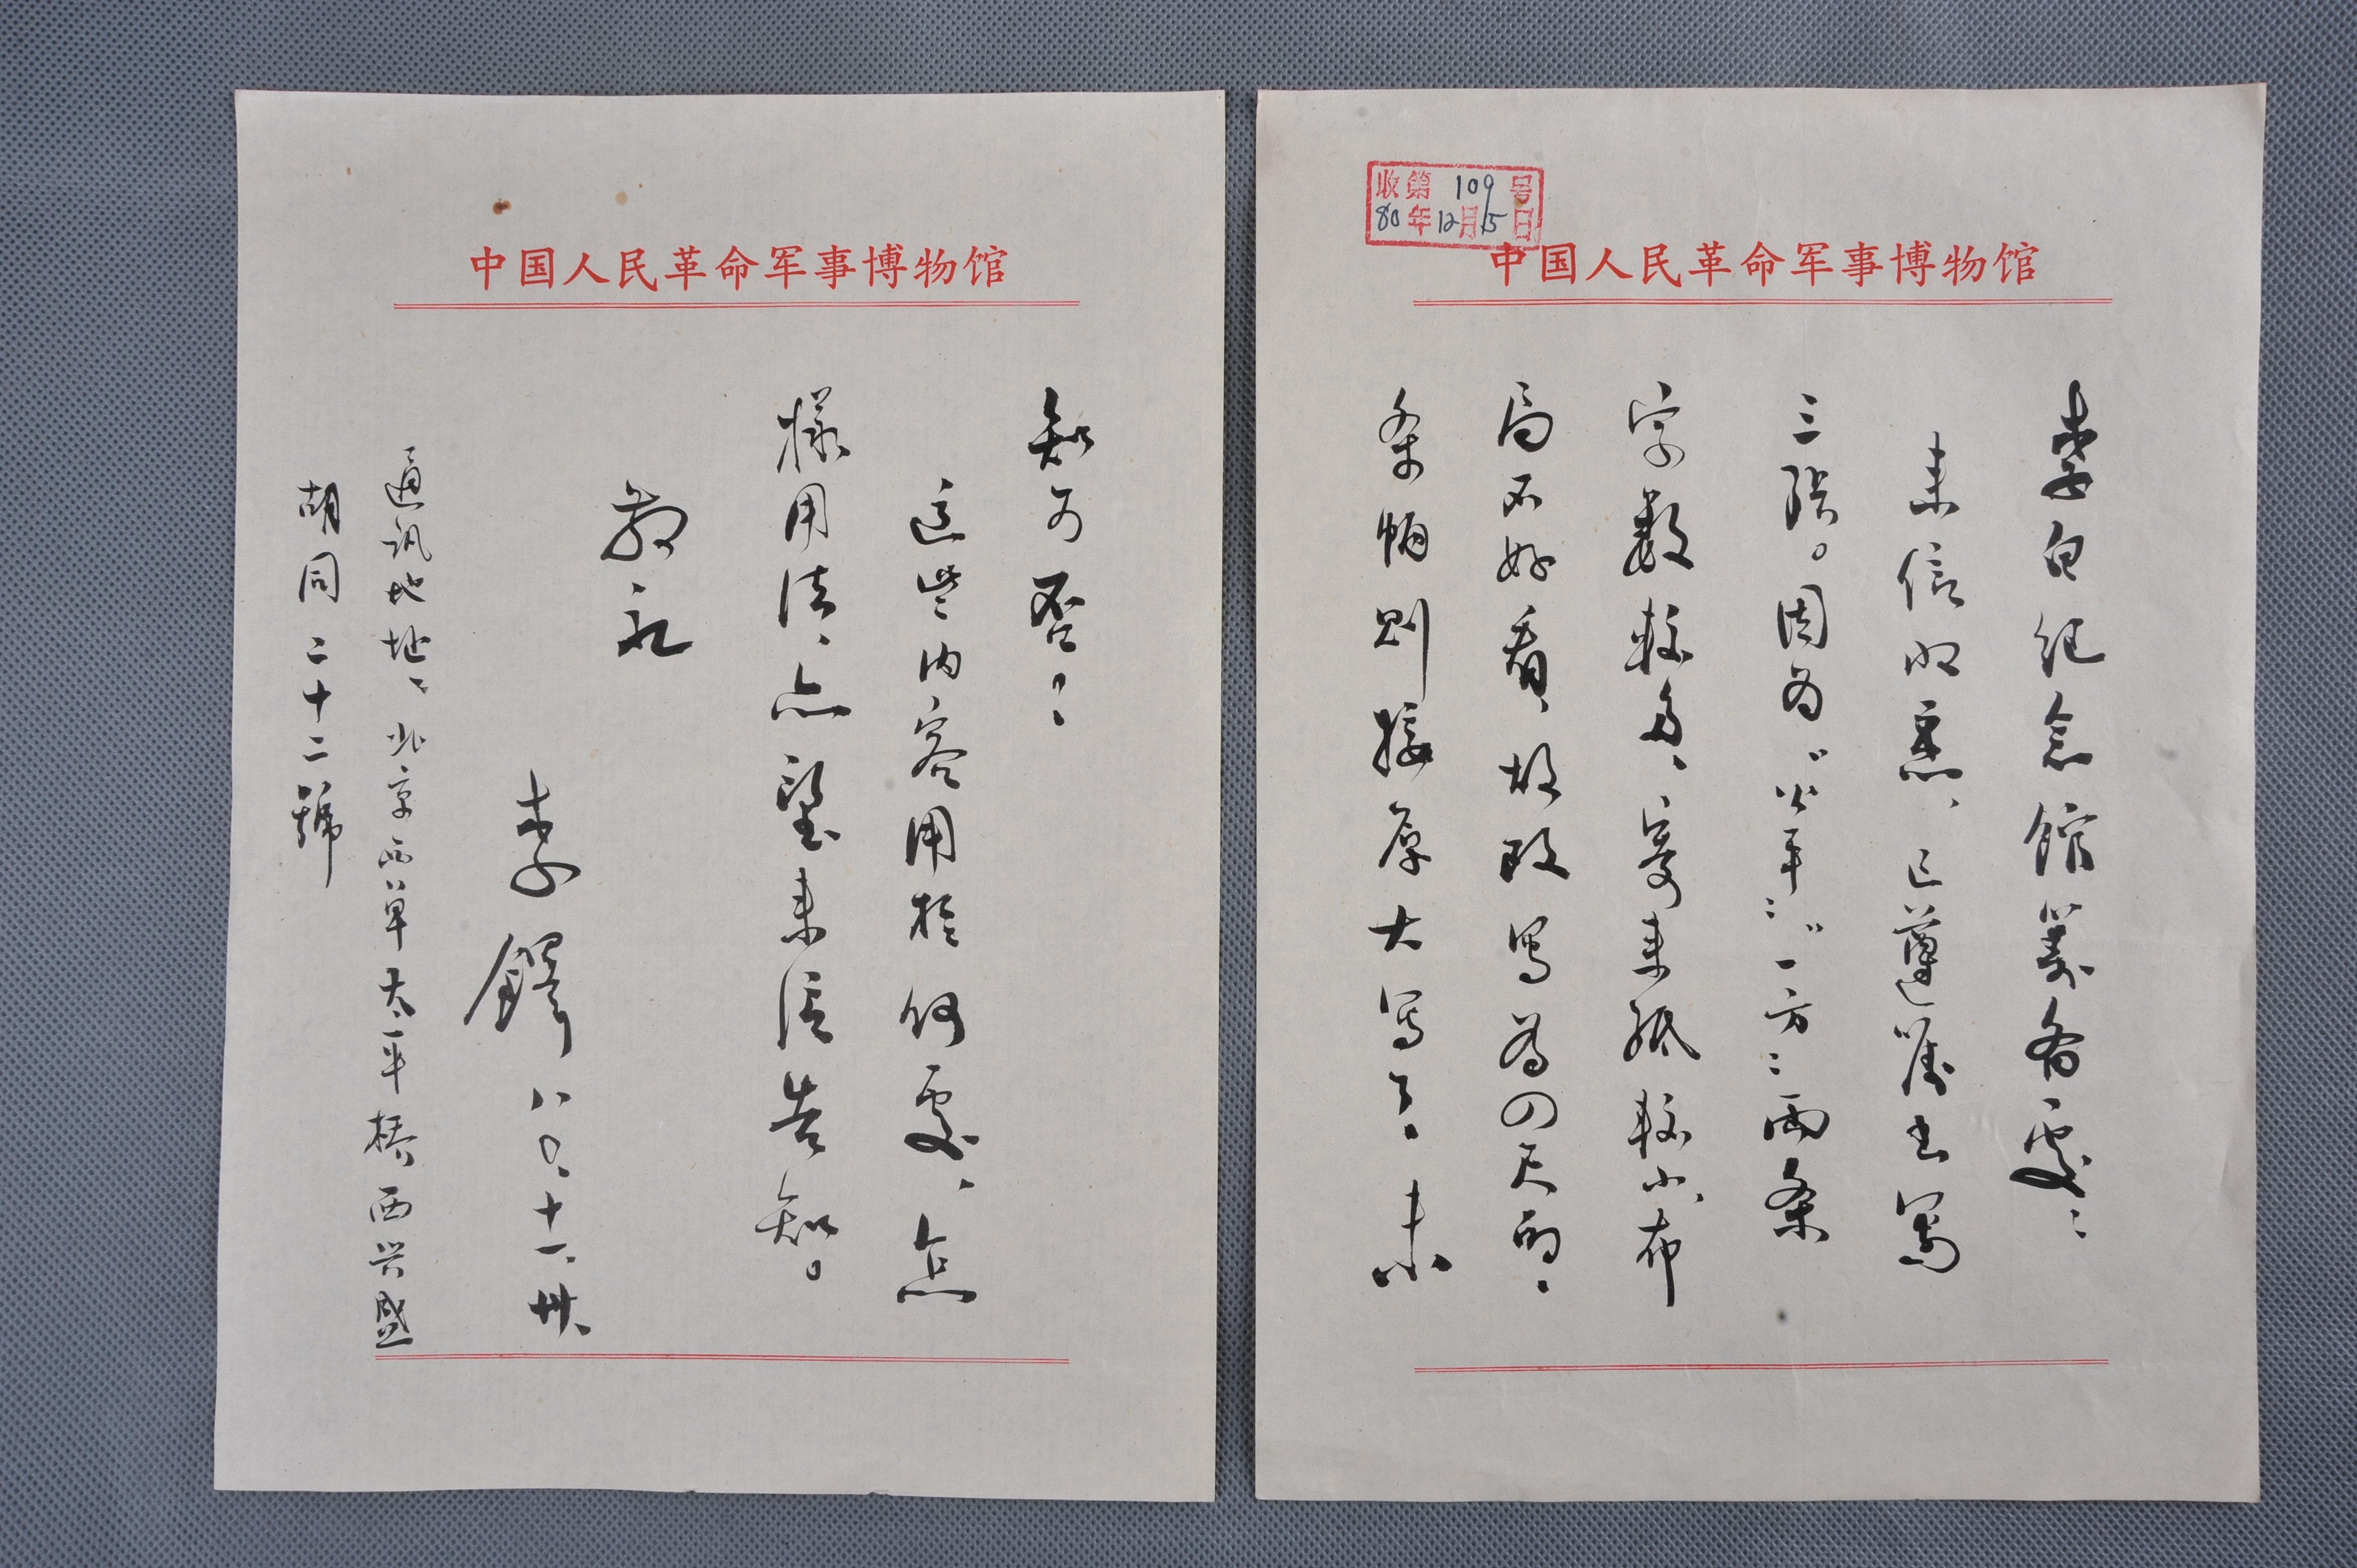 收第109号
80年12月15日
中国人民革命军事博物馆
李白纪念馆筹备处：
来信收悉、已遵嘱书写
三张。因为“少年：”“一方：”两条
字数较多、寄来纸较小、布
局不好看、故改写为四尺的、
条幅则接原大写了。未
中国人民革命军事博物馆
知可否：
这些内容用於何处、怎
样用法、亦望来信告知。
敬礼
李铎 八〇、十一、卅、
通讯地址：北京西单太平桥西兴盛
胡同二十二號